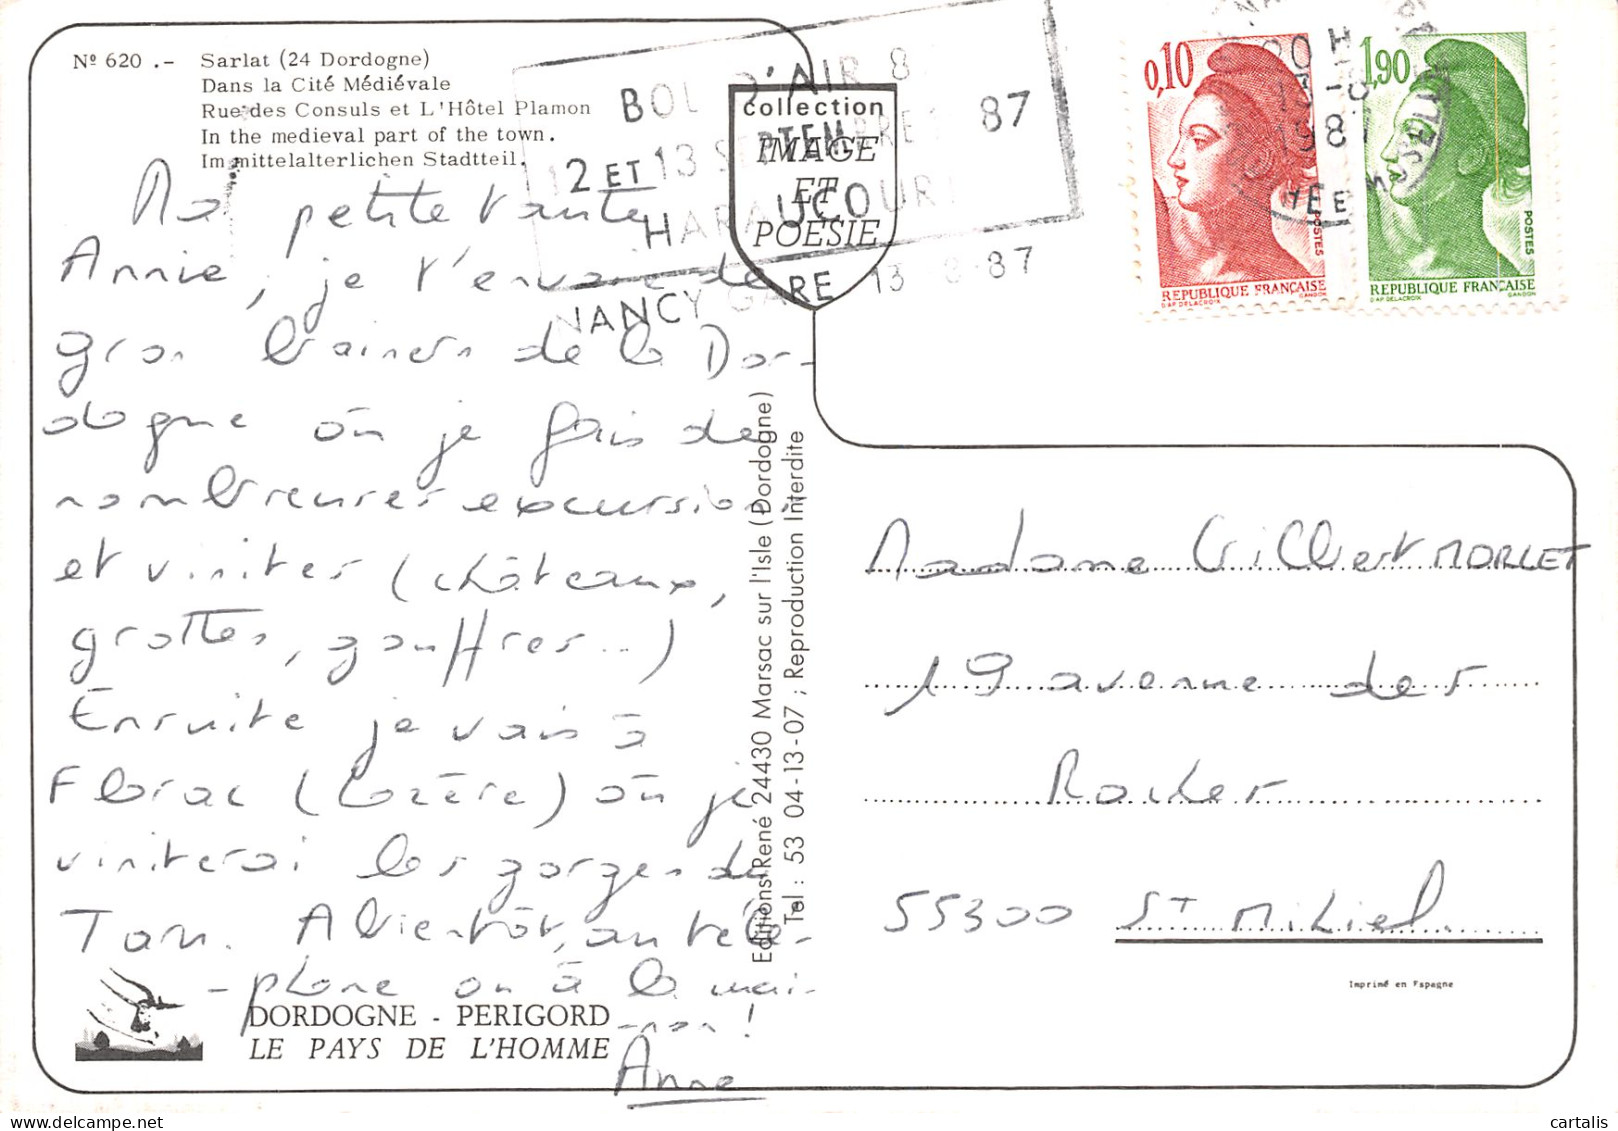 Nº 620 .- Sarlat (24 Dordogne)
Dans la Cité Médiévale
Rue des Consuls et L'Hôtel Plamon
In the medieval part of the town.
Im mittelalterlichen Stadtteil.
BOL D'AIR 87
12 ET 13 SEPTEMBRE
HARAUCOURT
NANCY GARE 13 -8-87
collection
IMAGE
ET
POÉSIE
0,10
POSTES
REPUBLIQUE FRANÇAISE
D'AP. DELACROIX GANDON
1,90
POSTES
REPUBLIQUE FRANÇAISE
D'AP. DELACROIX GANDON
20 H
13-8
1987
Ma petite tante
Annie, je t'envoie de
gros baisers de la Dor-
dogne où je fais de
nombreuses excursions
et visites (châteaux,
grottes, gouffres...)
Ensuite je vais à
Florac (Lozère) où je
visiterai les gorges du
Tarn. A bientôt, au télé-
-phone ou à la mai-
-son !
Anne
Editions René 24430 Marsac sur l'Isle (Dordogne)
Tel : 53 04-13-07 ; Reproduction Interdite
Madame Gilbert MORLET
19 avenue des
Roches
55300 ST Mihiel
Imprimé en Espagne
DORDOGNE - PERIGORD
LE PAYS DE L'HOMME
cartalis